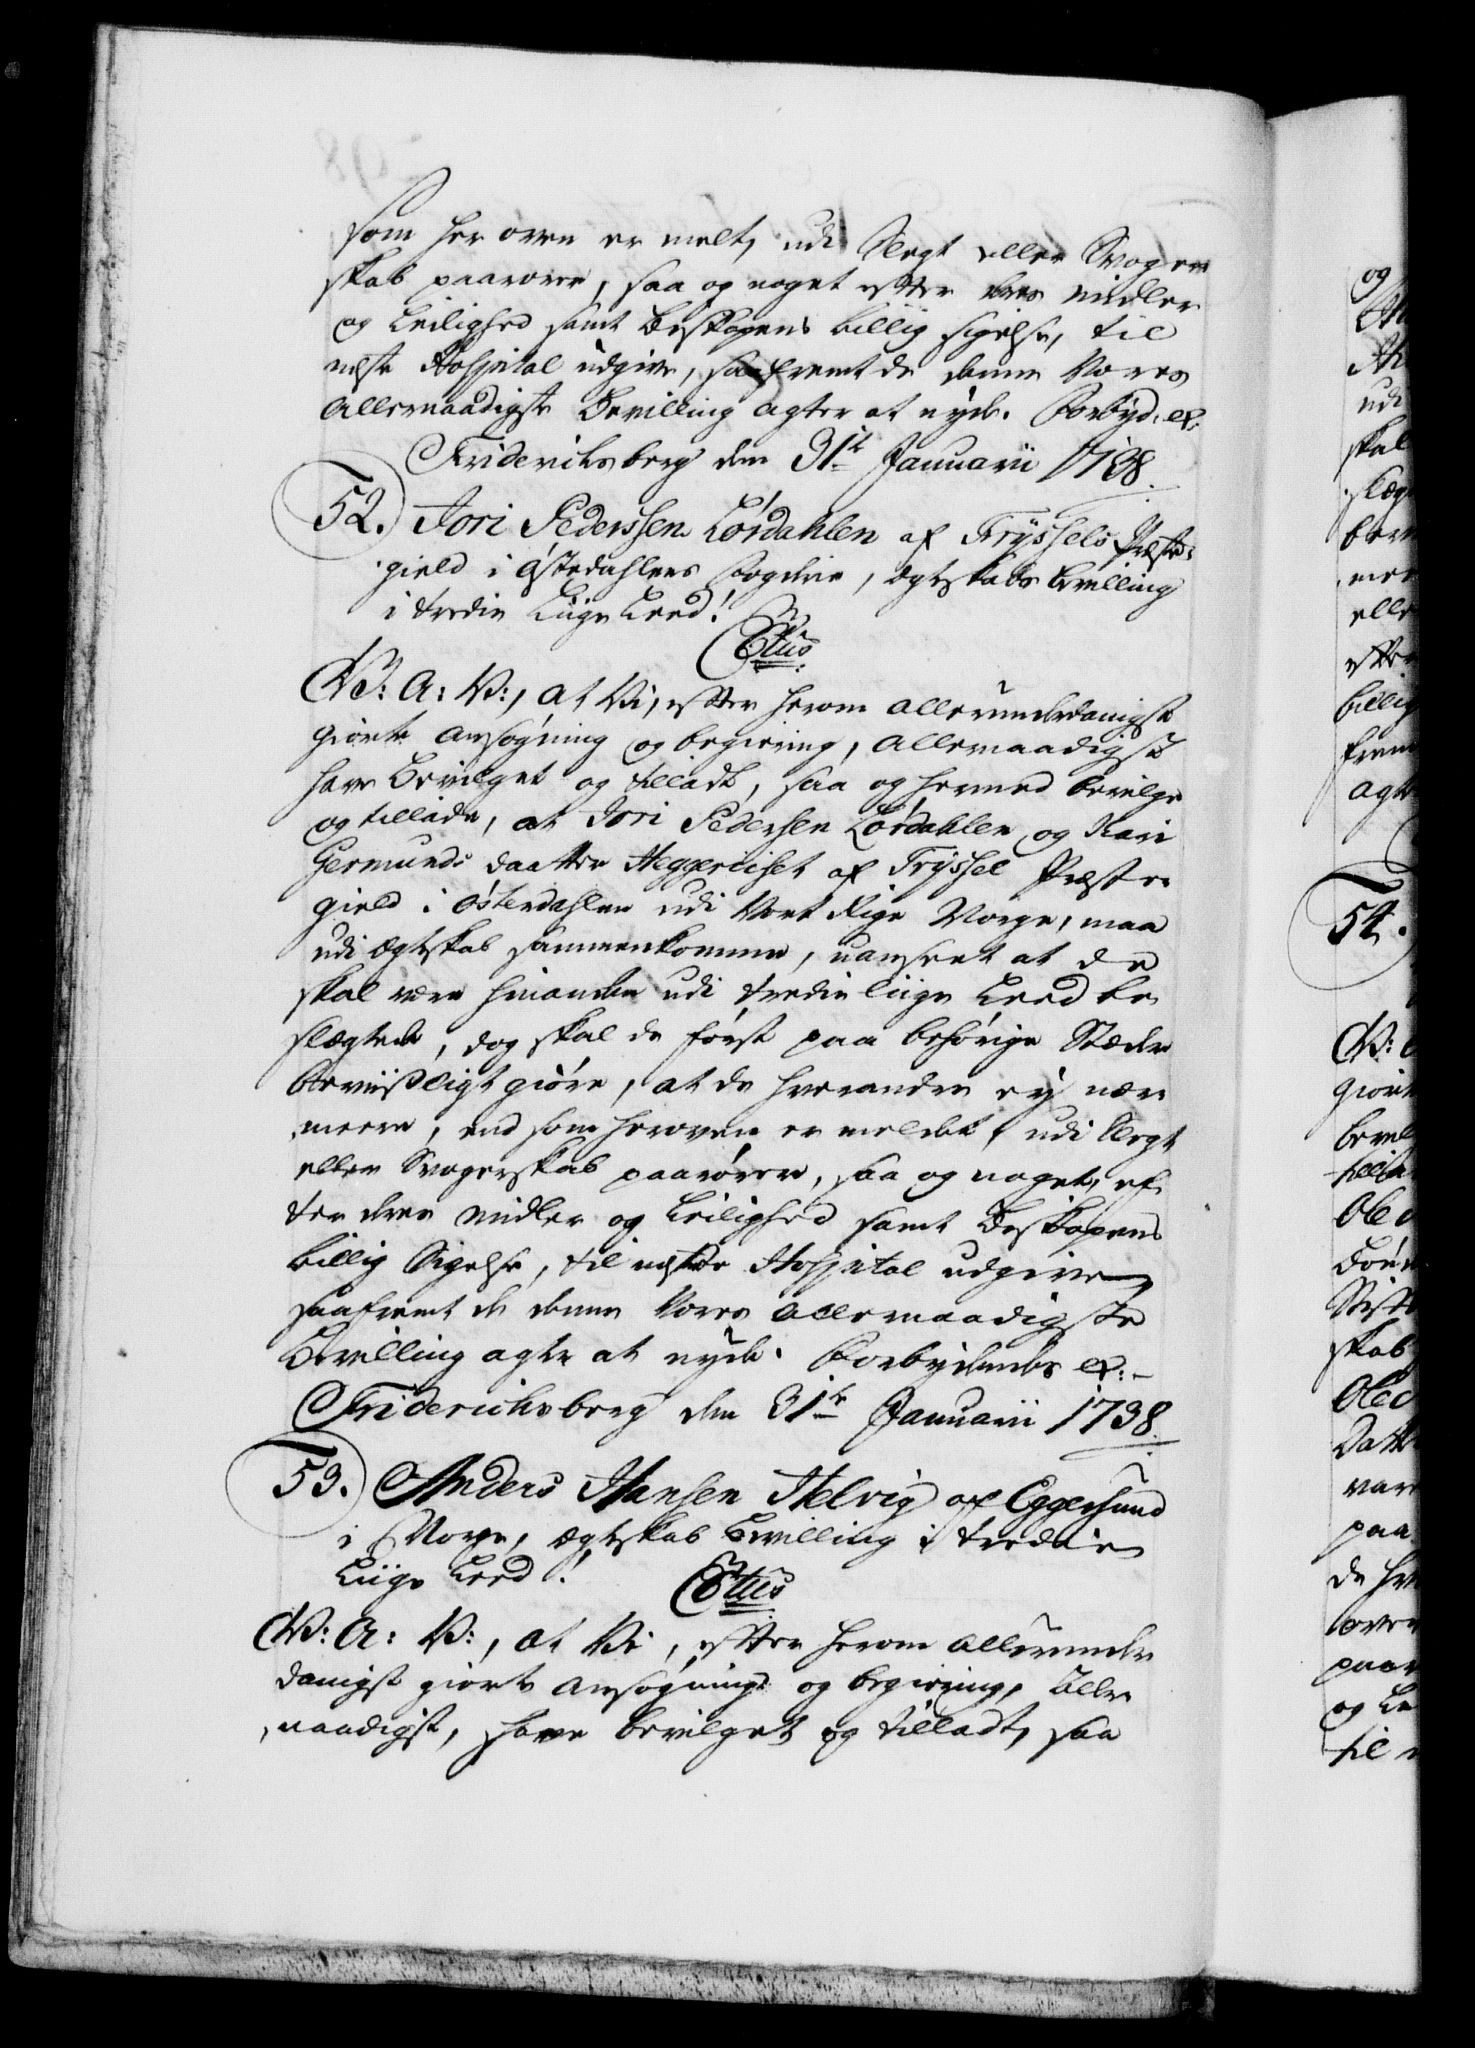 som her oven er melt, udi Slegt eller Svoger
skab paarører, saa og noget efter deres midler
og Leilighed samt Biskopens billig sigelse, til
næste Hospital udgive, saafremt de denne Vores
Allernaadigste Bevilling agter at nyde. Forbyd: etc:
Friderichsberg den 31te Januarii 1738.
52. Jori Pederssen Lórdahlen af Tryssels Præste-
gield i Østerdahlens Fogderie, Ægteskabs Bevilling
i tredie Liige Leed!
C6tus
W: A: V:, at Vi, efter herom allerunderdanigst
giorte Ansøgning og begiering, Allernaadigst
have Bevilget og tilladt, saa og hermed bevilge
og tillade, at Jori Pedersen Lórdahlen og Kari
Germunds daatter Heggeriiset af Tryssel Præste-
gield i Østerdahlen udi Vort Rige Norge, maa
udi Ægteskab sammenkomme, uanseet at de
skal være hinanden udi tredie liige Leed be-
slægtede, dog skal de først paa behørige Stæder
beviisligt giøre, at de hverandre ey nær-
meere, end som heroven er meldet, udi Slegt
eller Svogerskab paarører, saa og noget, ef-
ter deres midler og Leilighed samt Biskopens
billig Sigelse, til næste Hospital udgive,
saafremt de denne Vores allernaadigste
Bevilling agter at nyde. Forbydendes etc:-
Friderichsberg den 31te Januarii 1738.
53. Anders Hansen Helvig af Eggersund
i Norge, Ægteskab Bevilling i tredie
Liige Leed!
C6tus
W: A: V:, at Vi, efter herom allerunder
danigst giorte Ansøgning og begiering, Aller-
naadigst, have bevilget og tilladt, saa
og
udi
skal
slæg
54.
W:
giort
skab
paa
og Le
til